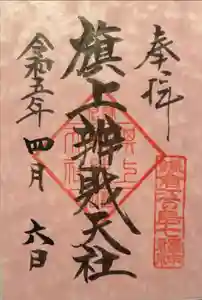 奉拝
旗上辨財天社
令和五年四月六日